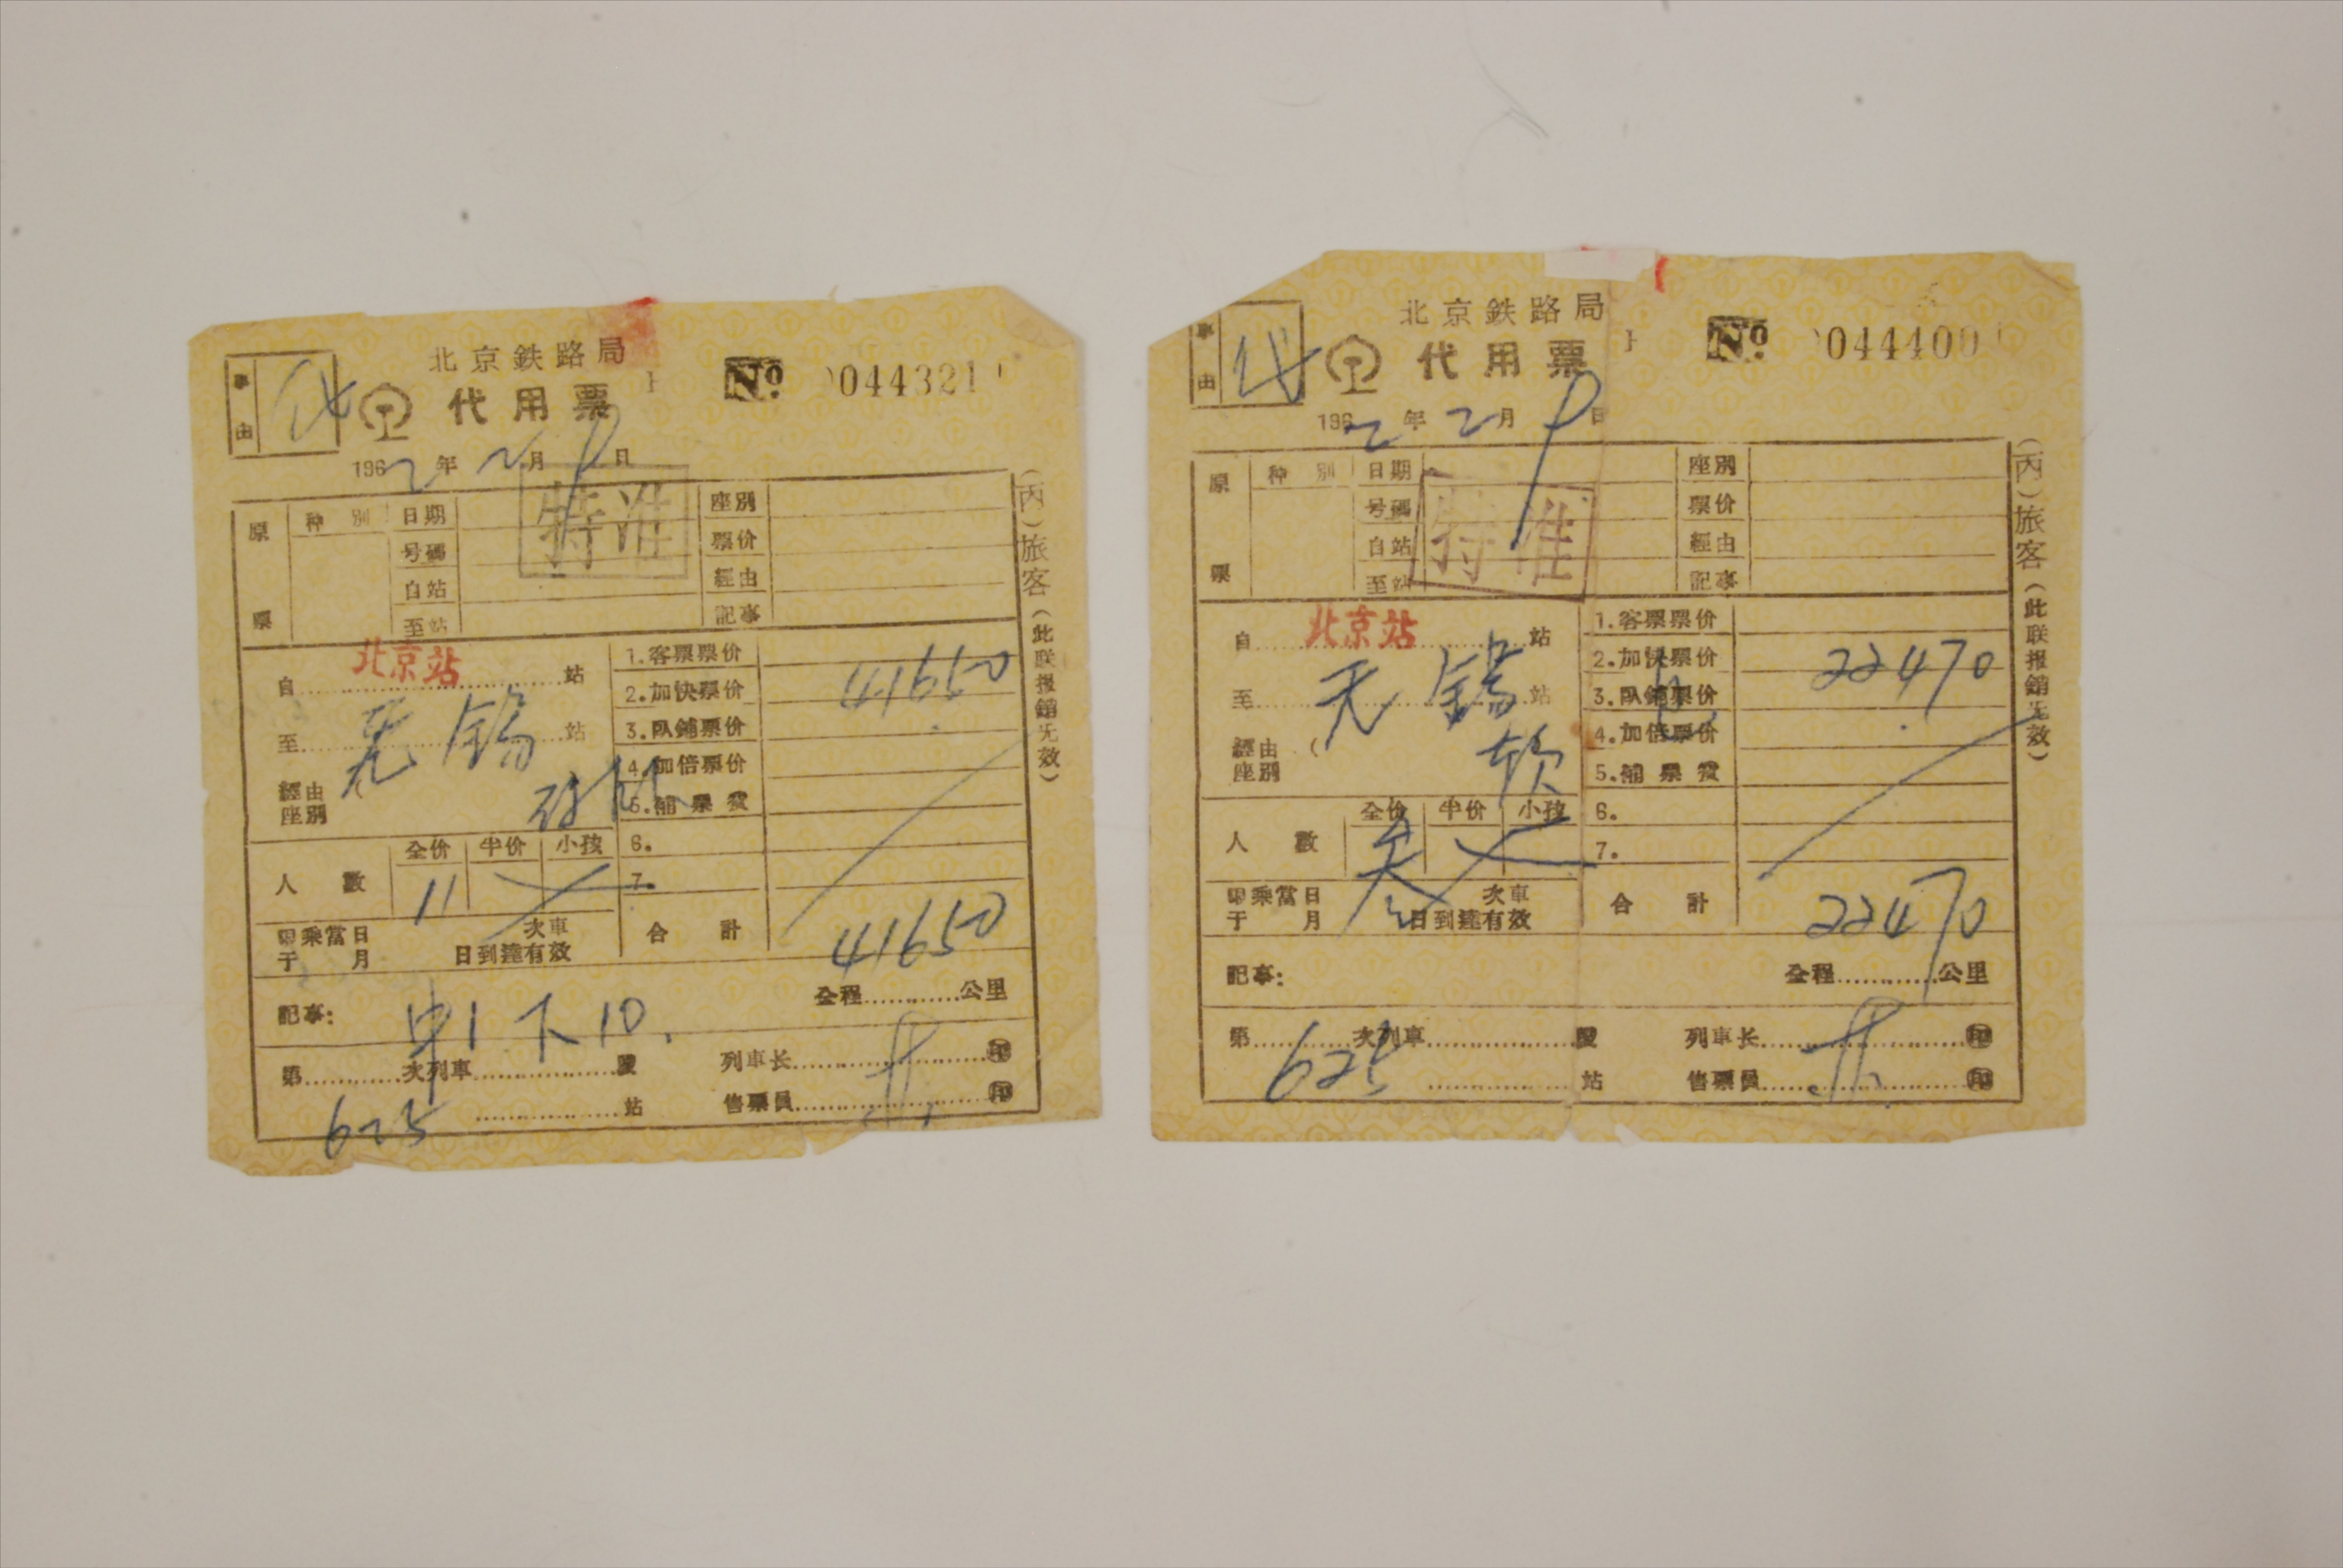 事由 代
北京鉄路局
代用票
No 044321
1962年2月9日
特准
原票
种別 日期 座別
号碼 票价
自站 經由
至站 記事
自 北京站 站
至 无錫 站
經由
座別
1.客票票价
2.加快票价 41650
3.臥鋪票价
4.加倍票价
5.補票費
6.
7.
人數 全价 半价 小孩
11
即乘當日 次車
于 月 日到達有效
合計 41650
記事: 中1 下10.
全程 公里
第 625 次列車 段 列車长 印
站 售票員 印
(丙)旅客(此联报銷无效)
事由 代
北京鉄路局
代用票
No 044400
1962年2月9日
特准
原票
种別 日期 座別
号碼 票价
自站 經由
至站 記事
自 北京站 站
至 无錫 站
經由 (
座別 软
1.客票票价
2.加快票价 22470
3.臥鋪票价
4.加倍票价
5.補票費
6.
7.
人數 全价 半价 小孩
即乘當日 次車
于 月 日到達有效
合計 22470
記事:
全程 公里
第 625 次列車 段 列車长 印
站 售票員 印
(丙)旅客(此联报銷无效)